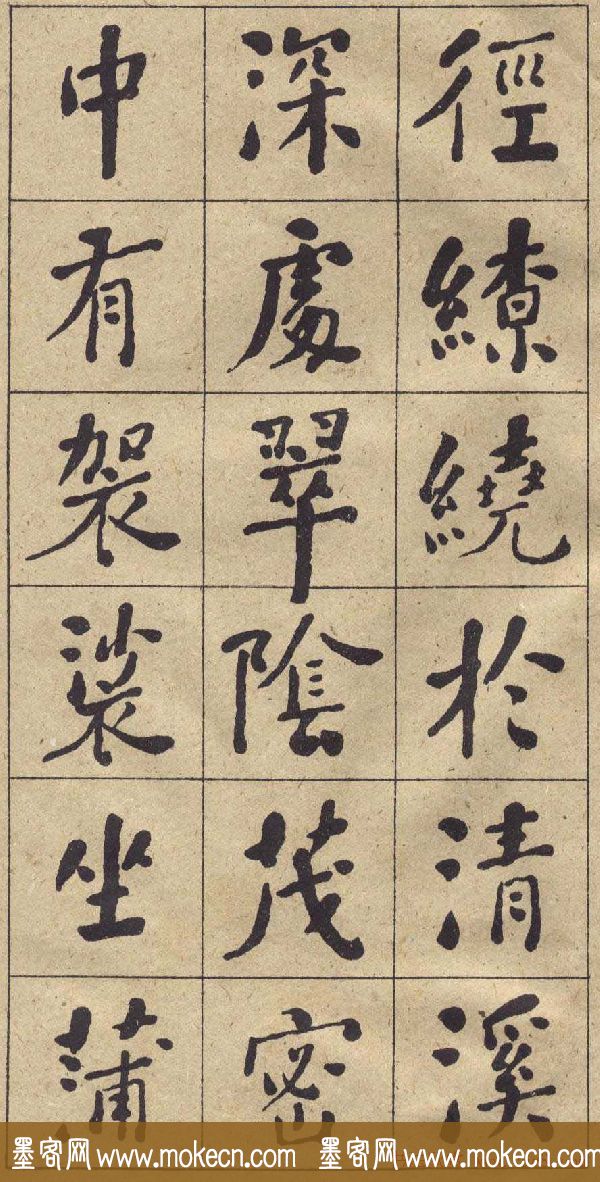 徑繚繞於清溪
深處翠陰茂密
中有袈裟坐蒲
墨客网 www.mokecn.com 墨客网 www.mokecn.com